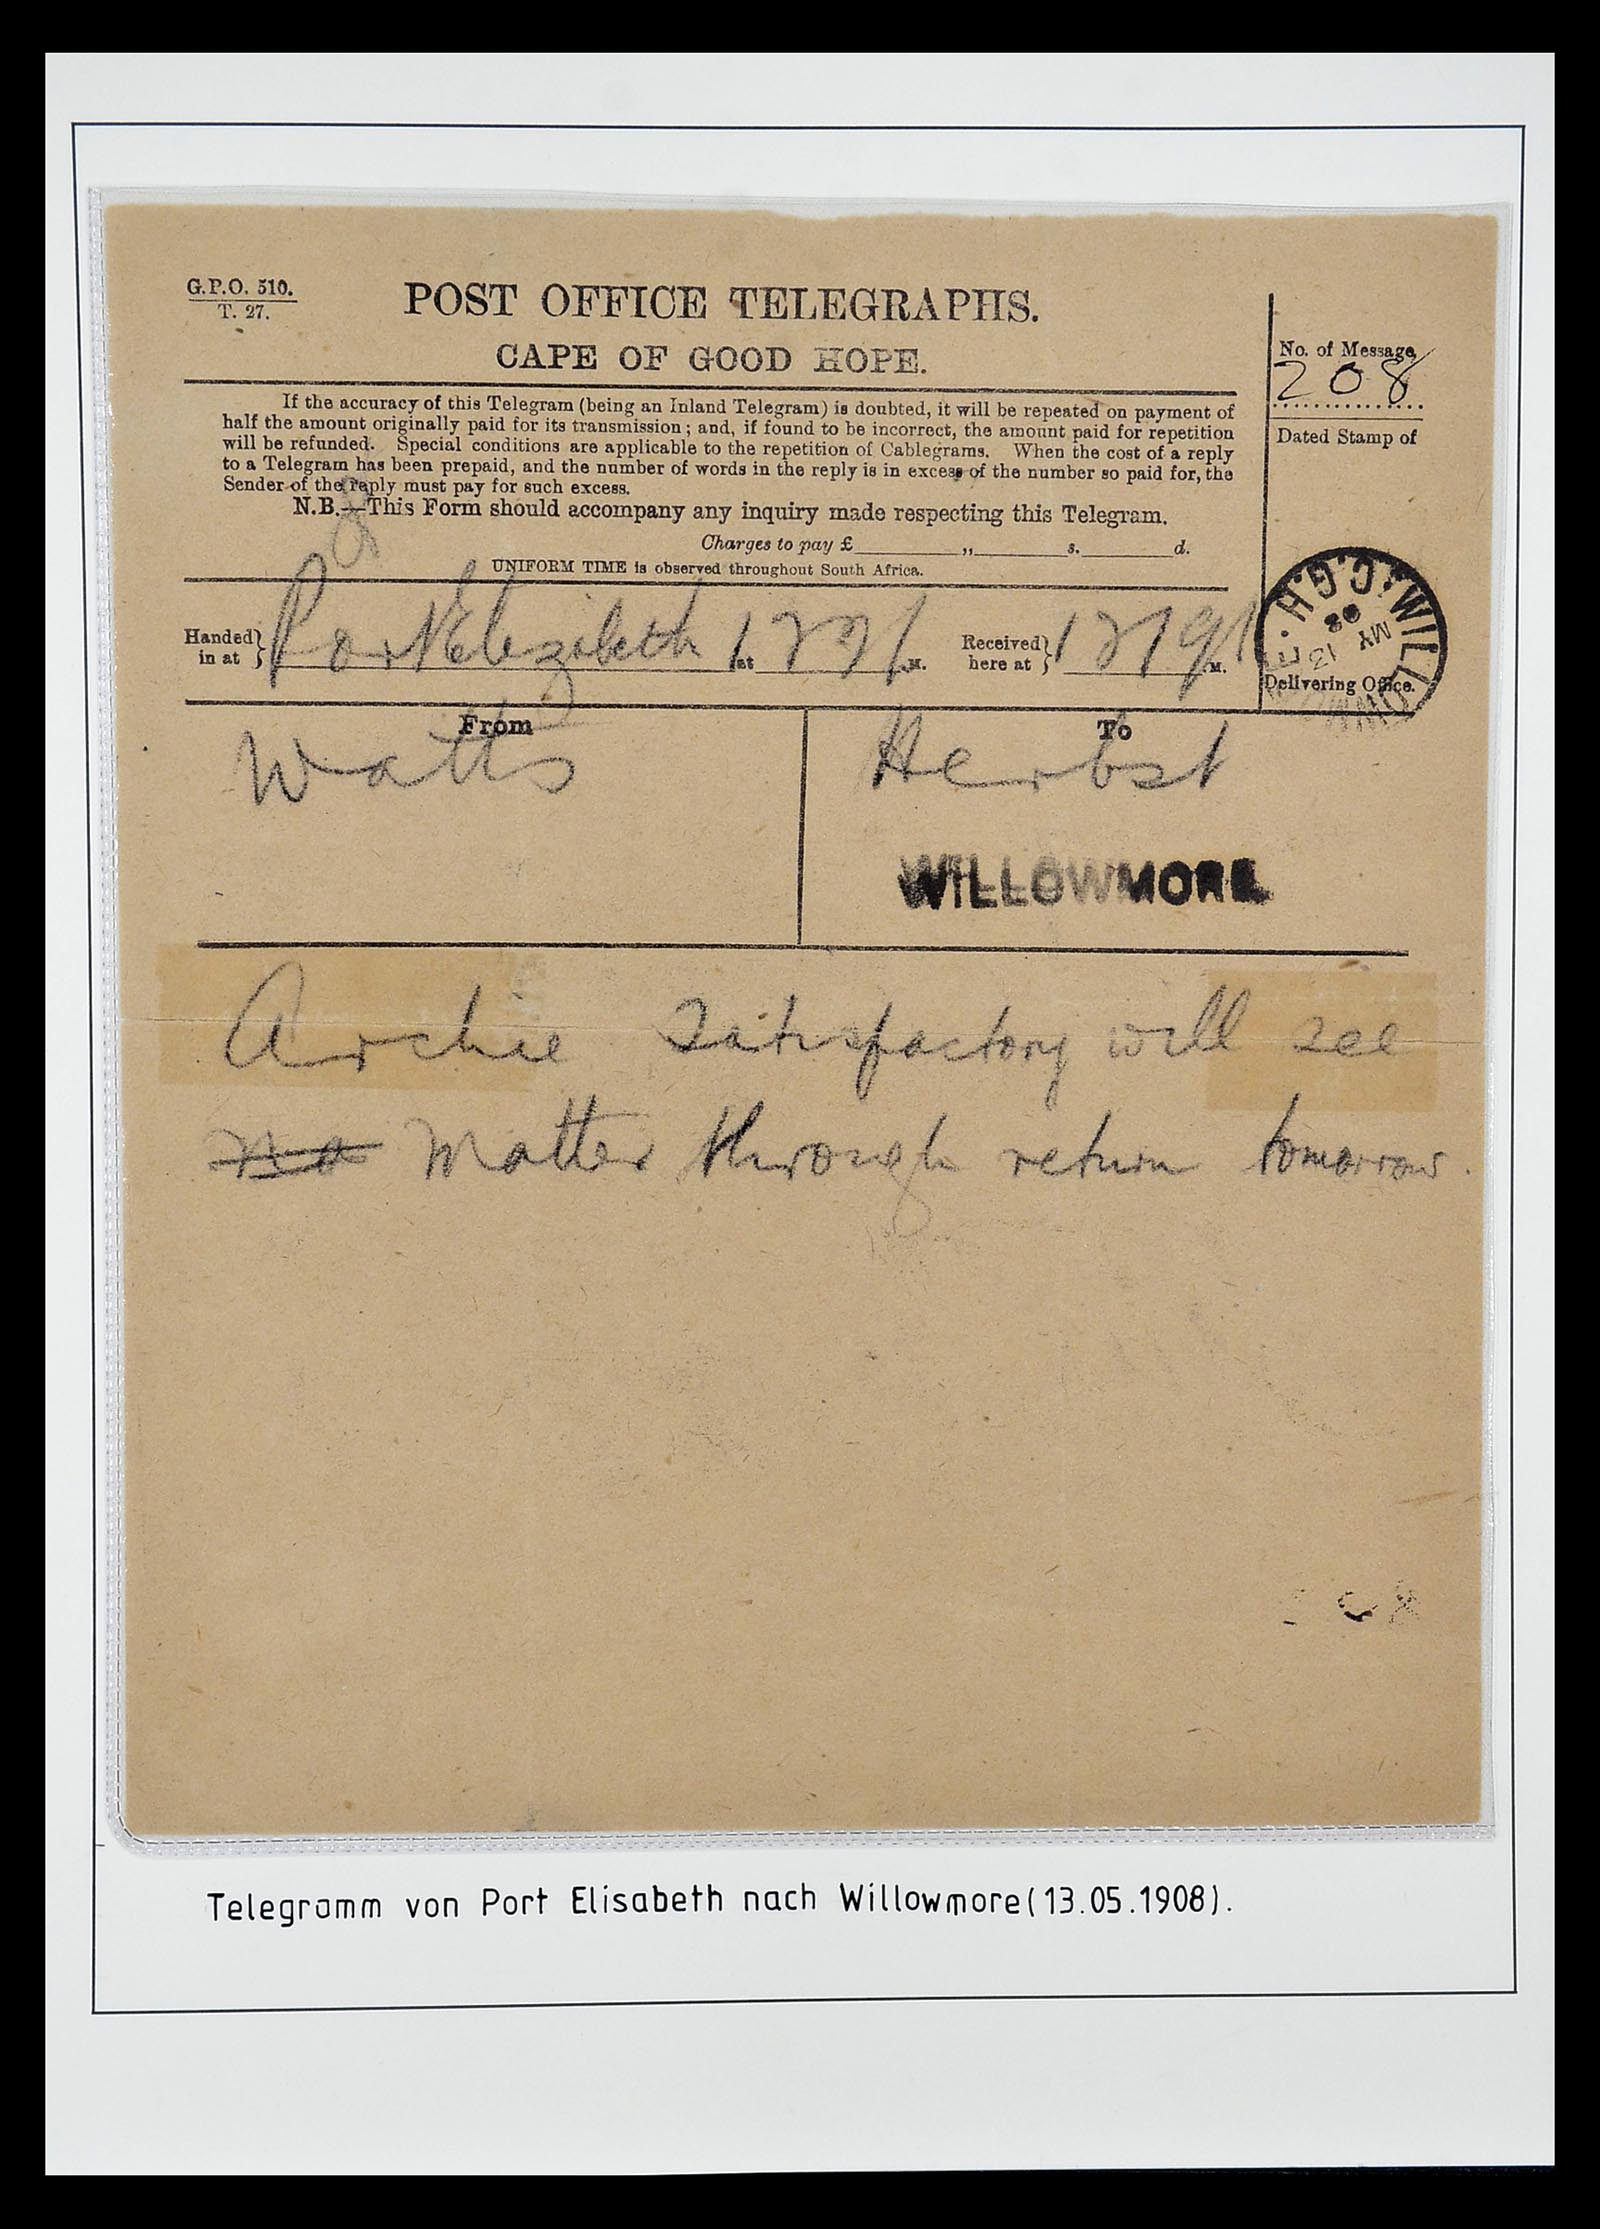 G.P.O. 510.
T. 27.
POST OFFICE TELEGRAPHS.
CAPE OF GOOD HOPE.
No. of Message
208
Dated Stamp of
If the accuracy of this Telegram (being an Inland Telegram) is doubted, it will be repeated on payment of
half the amount originally paid for its transmission; and, if found to be incorrect, the amount paid for repetition
will be refunded. Special conditions are applicable to the repetition of Cablegrams. When the cost of a reply
to a Telegram has been prepaid, and the number of words in the reply is in excess of the number so paid for, the
Sender of the reply must pay for such excess.
N.B.—This Form should accompany any inquiry made respecting this Telegram.
Charges to pay £ ,, s. d.
UNIFORM TIME is observed throughout South Africa.
Handed in at Port Elizabeth at M. Received here at M.
C.G.H.
MY 13
08
Delivering Office.
From To
Watts Herbst
WILLOWMORE
Archie Satisfactory will see
Matter through return tomorrow.
Telegramm von Port Elisabeth nach Willowmore(13.05.1908).